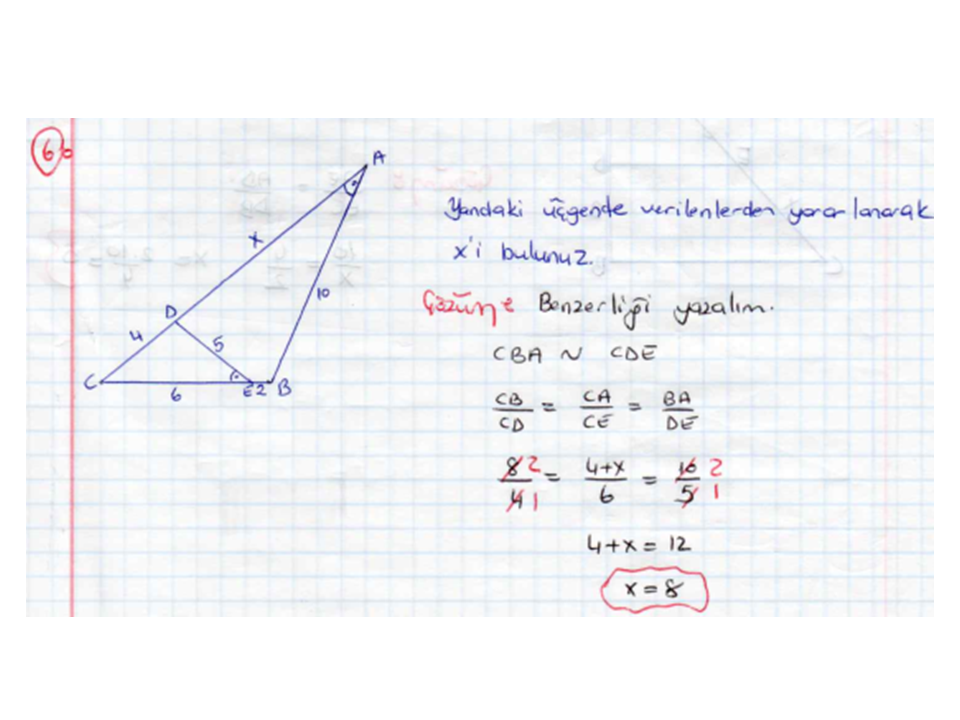 6.
A
x
10
D
4
5
C
6
E 2 B
Yandaki üçgende verilenlerden yararlanarak
x'i bulunuz.
Çözüm: Benzerliği yazalım.
CBA ~ CDE
CB/CD = CA/CE = BA/DE
8/4 2/1 = 4+x/6 = 10/5 2/1
4+x = 12
x = 8